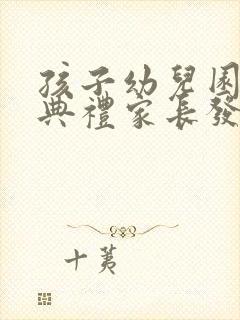 孩子幼兒園
典禮家長發
十荑